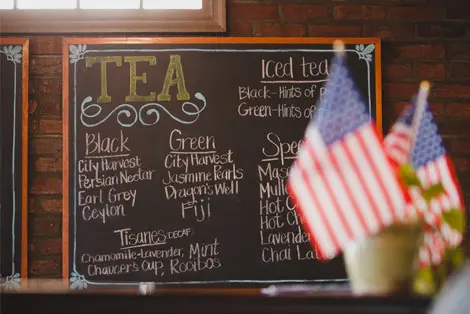 TEA
Black
City Harvest
Persian Nectar
Earl Grey
Ceylon
Green
City Harvest
Jasmine Pearls
Dragon's Well
Fiji
Tisanes (DECAF)
Chamomile-Lavender, Mint
Chaucer's Cup, Rooibos
Iced tea
Black-Hints of
Green-Hints of
Hot
Hot
Lavender
Chai